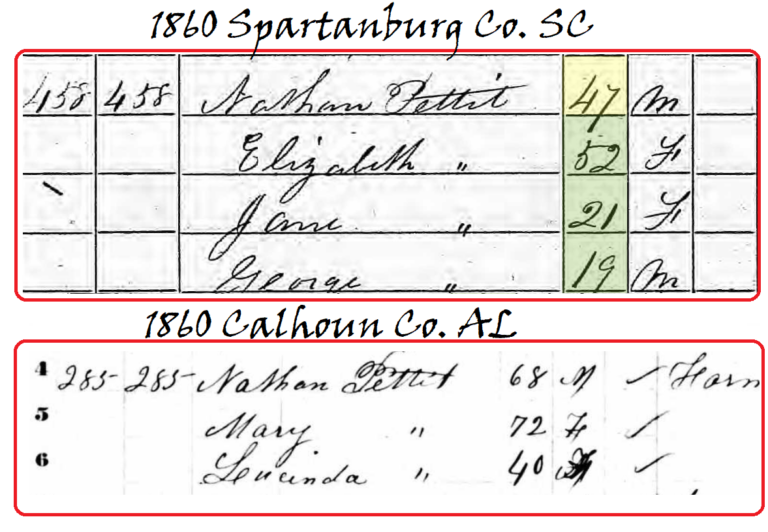 1860 Spartanburg Co. SC
458 458 Nathan Pettit 47 M
Elizabeth " 52 F
Jane " 21 F
George " 19 M
1860 Calhoun Co. AL
4 285 285 Nathan Pettit 68 M ✓ Farm
5 Mary " 72 F ✓
6 Lucinda " 40 ✓